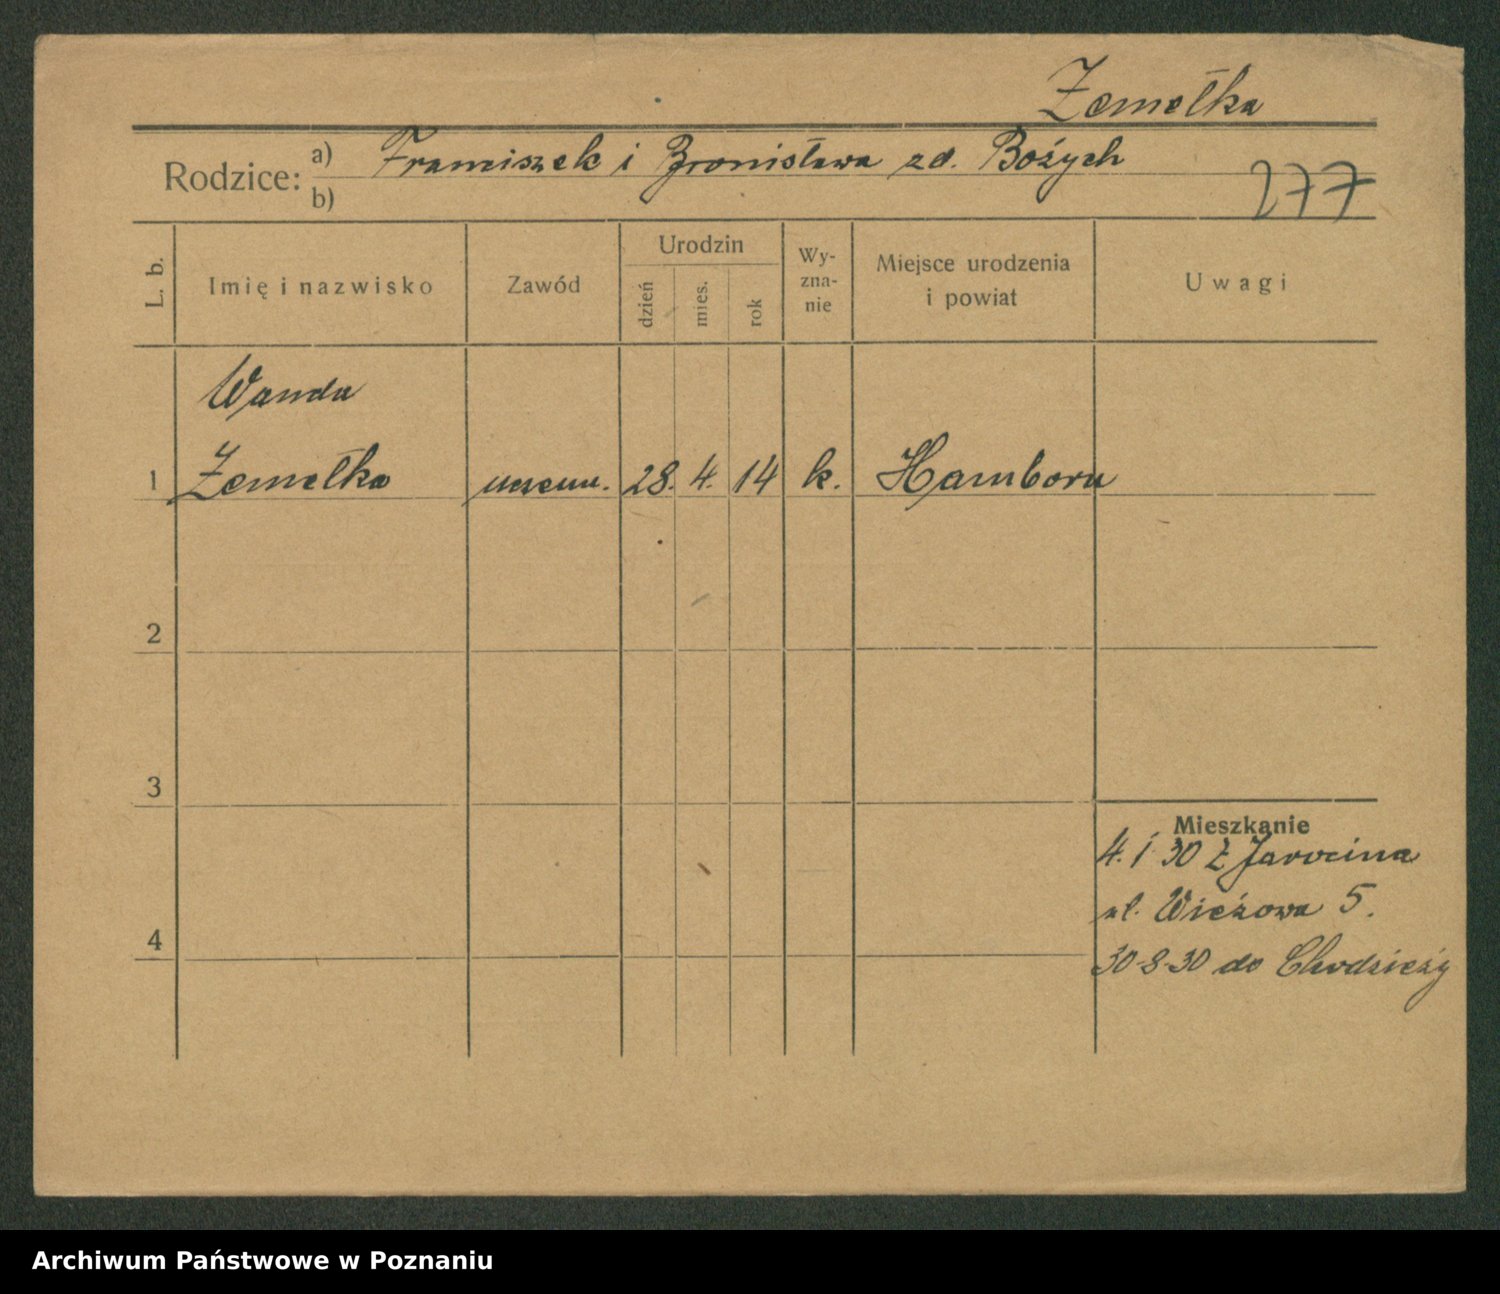 Zemełka
Rodzice:
a) Franciszek i Bronisława zd. Bożych
b)
277
L. b.
Imię i nazwisko
Zawód
Urodzin
dzień
mies.
rok
Wy-
zna-
nie
Miejsce urodzenia
i powiat
Uwagi
Wanda
1 Zemełka uczenn. 28. 4. 14 k. Hamboru
2
3
Mieszkanie
4. 1 30 z Jarocina
ul. Wieżowa 5.
4
30-8-30 do Chodzieży
Archiwum Państwowe w Poznaniu